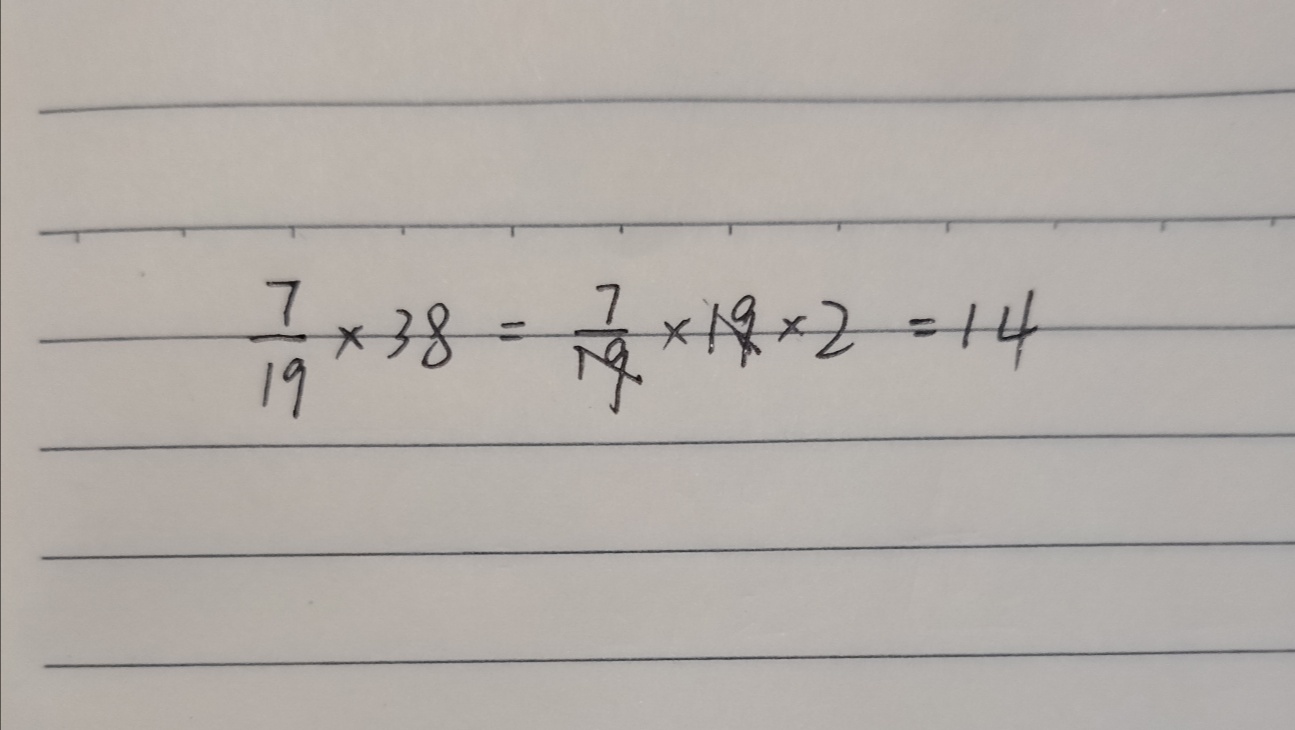 7/19 × 38 = 7/19 × 19 × 2 = 14